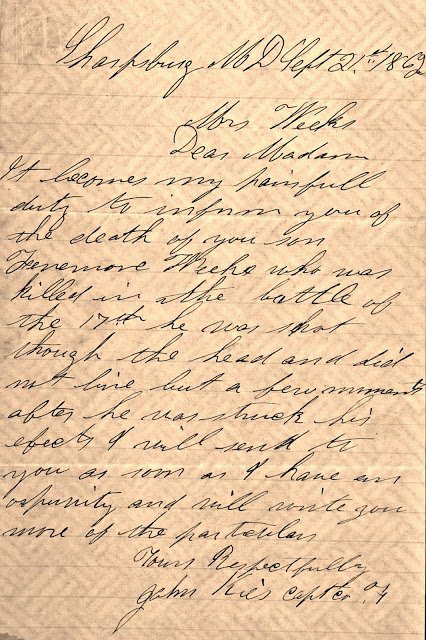 Sharpsburg MD Sept 21st 1862
Mrs Weeks
Dear Madam
It becomes my painfull
duty to inform you of
the death of you son
Fenemore Weeks who was
killed in the battle of
the 17th he was shot
though the head and did
not live but a few moments
after he was struck his
efects I will send to
you as soon as I have an
and will write you
more of the particulars
Yours Respectfully
John Kies Capt Co